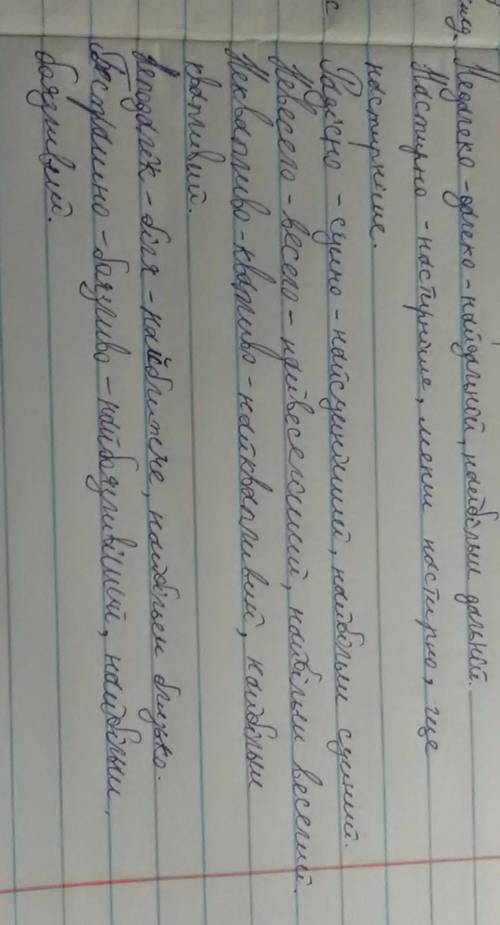 Недалеко - далеко - найдальной, найбільш дальной.
Настирно - настирніше, менш настирно, ще
настирніше.
Радісно - сумно - найсумніший, найбільш сумний.
Невесело - весело - найвеселіший, найбільш веселий.
Неквапливо - квапливо - найквапливий, найбільш
квапливий.
Неподалік - біля - найближче, найбільш близько.
Безстрашно - боязливо - найбоязливіший, найбільш
боязливий.